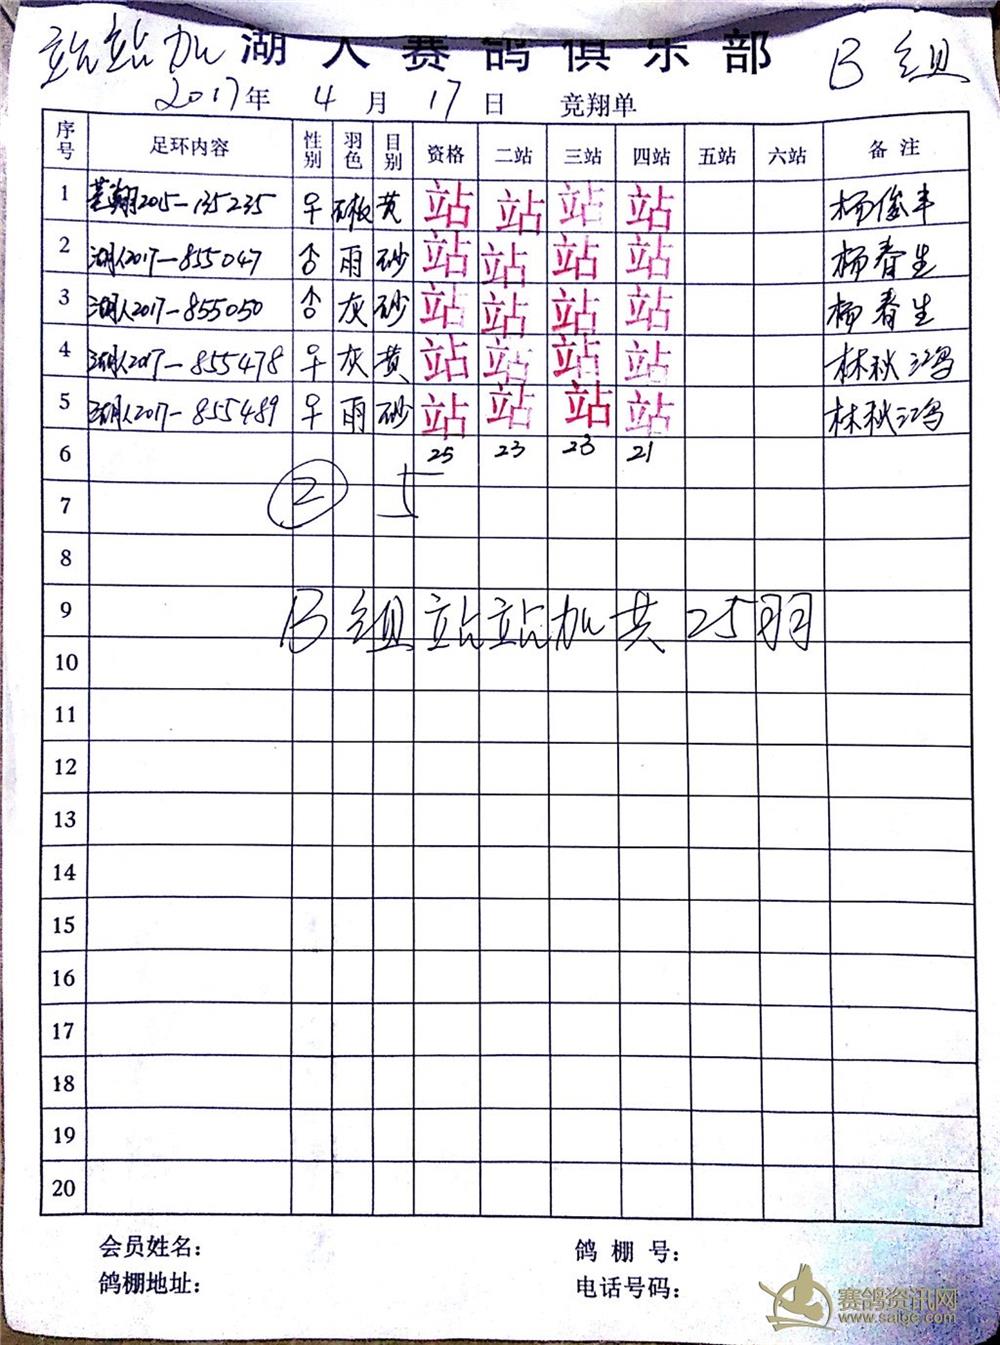 站站加 湖人赛鸽俱乐部 B组
2017年 4月 17日 竞翔单
序号 足环内容 性别 羽色 目别 资格 二站 三站 四站 五站 六站 备注
1 2015-135235 ♀ 黄 站 站 站 站 杨俊丰
2 湖人2017-855047 ♂ 雨 砂 站 站 站 站 杨春生
3 湖人2017-855050 ♂ 灰 砂 站 站 站 站 杨春生
4 湖人2017-855478 ♀ 灰 黄 站 站 站 站 林秋鸿
5 湖人2017-855489 ♀ 雨 砂 站 站 站 站 林秋鸿
6 25 23 23 21
7 ②
8
9 B组站站加共25羽
10
11
12
13
14
15
16
17
18
19
20
会员姓名： 鸽棚号：
鸽棚地址： 电话号码：
赛鸽资讯网
www.saige.com